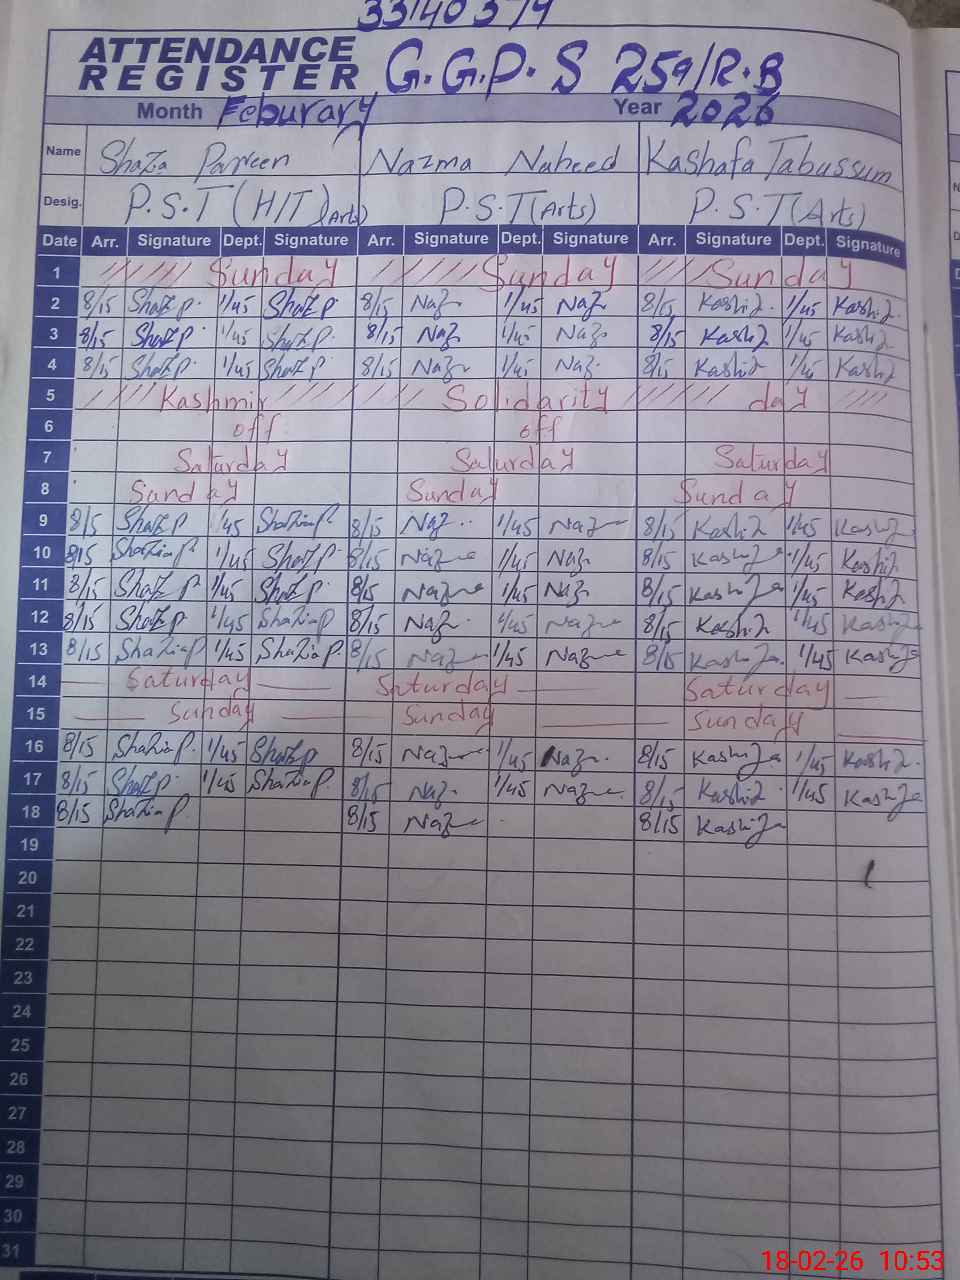 33140379
ATTENDANCE REGISTER G.G.P.S 259/R.B
Month Feburary Year 2026
Name Shazia Parveen Nazma Naheed Kashafa Tabussum
Desig. P.S.T (HIT) (Arts) P.S.T (Arts) P.S.T (Arts)
Date Arr. Signature Dept. Signature Arr. Signature Dept. Signature Arr. Signature Dept. Signature
1 Sunday Sunday Sunday
2 8/15 ShaZP. 1/45 ShaZP. 8/15 Naz 1/45 Naz 8/15 Kashiz. 1/45 Kashiz.
3 8/15 ShaZP. 1/45 ShaZP. 8/15 Naz 1/45 Naz 8/15 Kashiz 1/45 Kashiz
4 8/15 ShaZP. 1/45 ShaZP. 8/15 Naz 1/45 Naz. 8/15 Kashiz 1/45 Kashiz
5 Kashmir Solidarity day
6 off off
7 Saturday Saturday Saturday
8 Sunday Sunday Sunday
9 8/15 ShaZP 1/45 ShaZiaP 8/15 Naz 1/45 Naz 8/15 Kashiz 1/45 Kashiz
10 8/15 ShaZiaP 1/45 ShaZP. 8/15 Naz 1/45 Naz 8/15 Kashiz 1/45 Kashiz
11 8/15 ShaZP 1/45 ShaZP. 8/15 Naz 1/45 Naz 8/15 Kashiz 1/45 Kashiz
12 8/15 ShaZP 1/45 ShaZiaP 8/15 Naz. 1/45 Naz 8/15 Kashiz 1/45 Kashiz
13 8/15 ShaZiaP 1/45 ShaZiaP. 8/15 Naz 1/45 Naz 8/15 Kashiz 1/45 Kashiz
14 Saturday Saturday Saturday
15 Sunday Sunday Sunday
16 8/15 ShaZiaP. 1/45 ShaZP 8/15 Naz 1/45 Naz. 8/15 Kashiz 1/45 Kashiz.
17 8/15 ShaZP. 1/45 ShaZiaP. 8/15 Naz. 1/45 Naz 8/15 Kashiz. 1/45 Kashiz
18 8/15 ShaZiaP. 8/15 Naz 8/15 Kashiz
19
20
21
22
23
24
25
26
27
28
29
30
31
18-02-26 10:53